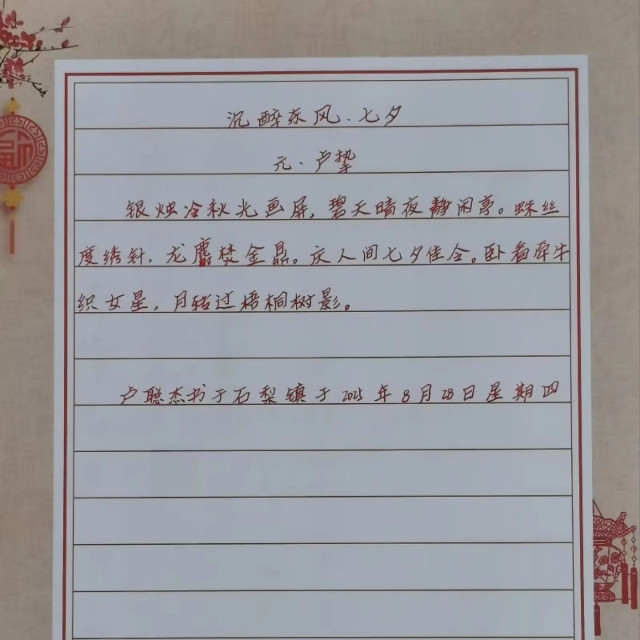 沉醉东风·七夕
元·卢挚
银烛冷秋光画屏,碧天晴夜静闲亭。蛛丝
度绣针,龙麝焚金鼎。庆人间七夕佳令。卧看牵牛
织女星,月转过梧桐树影。
卢聪杰书于石梨镇于2025年8月28日星期四